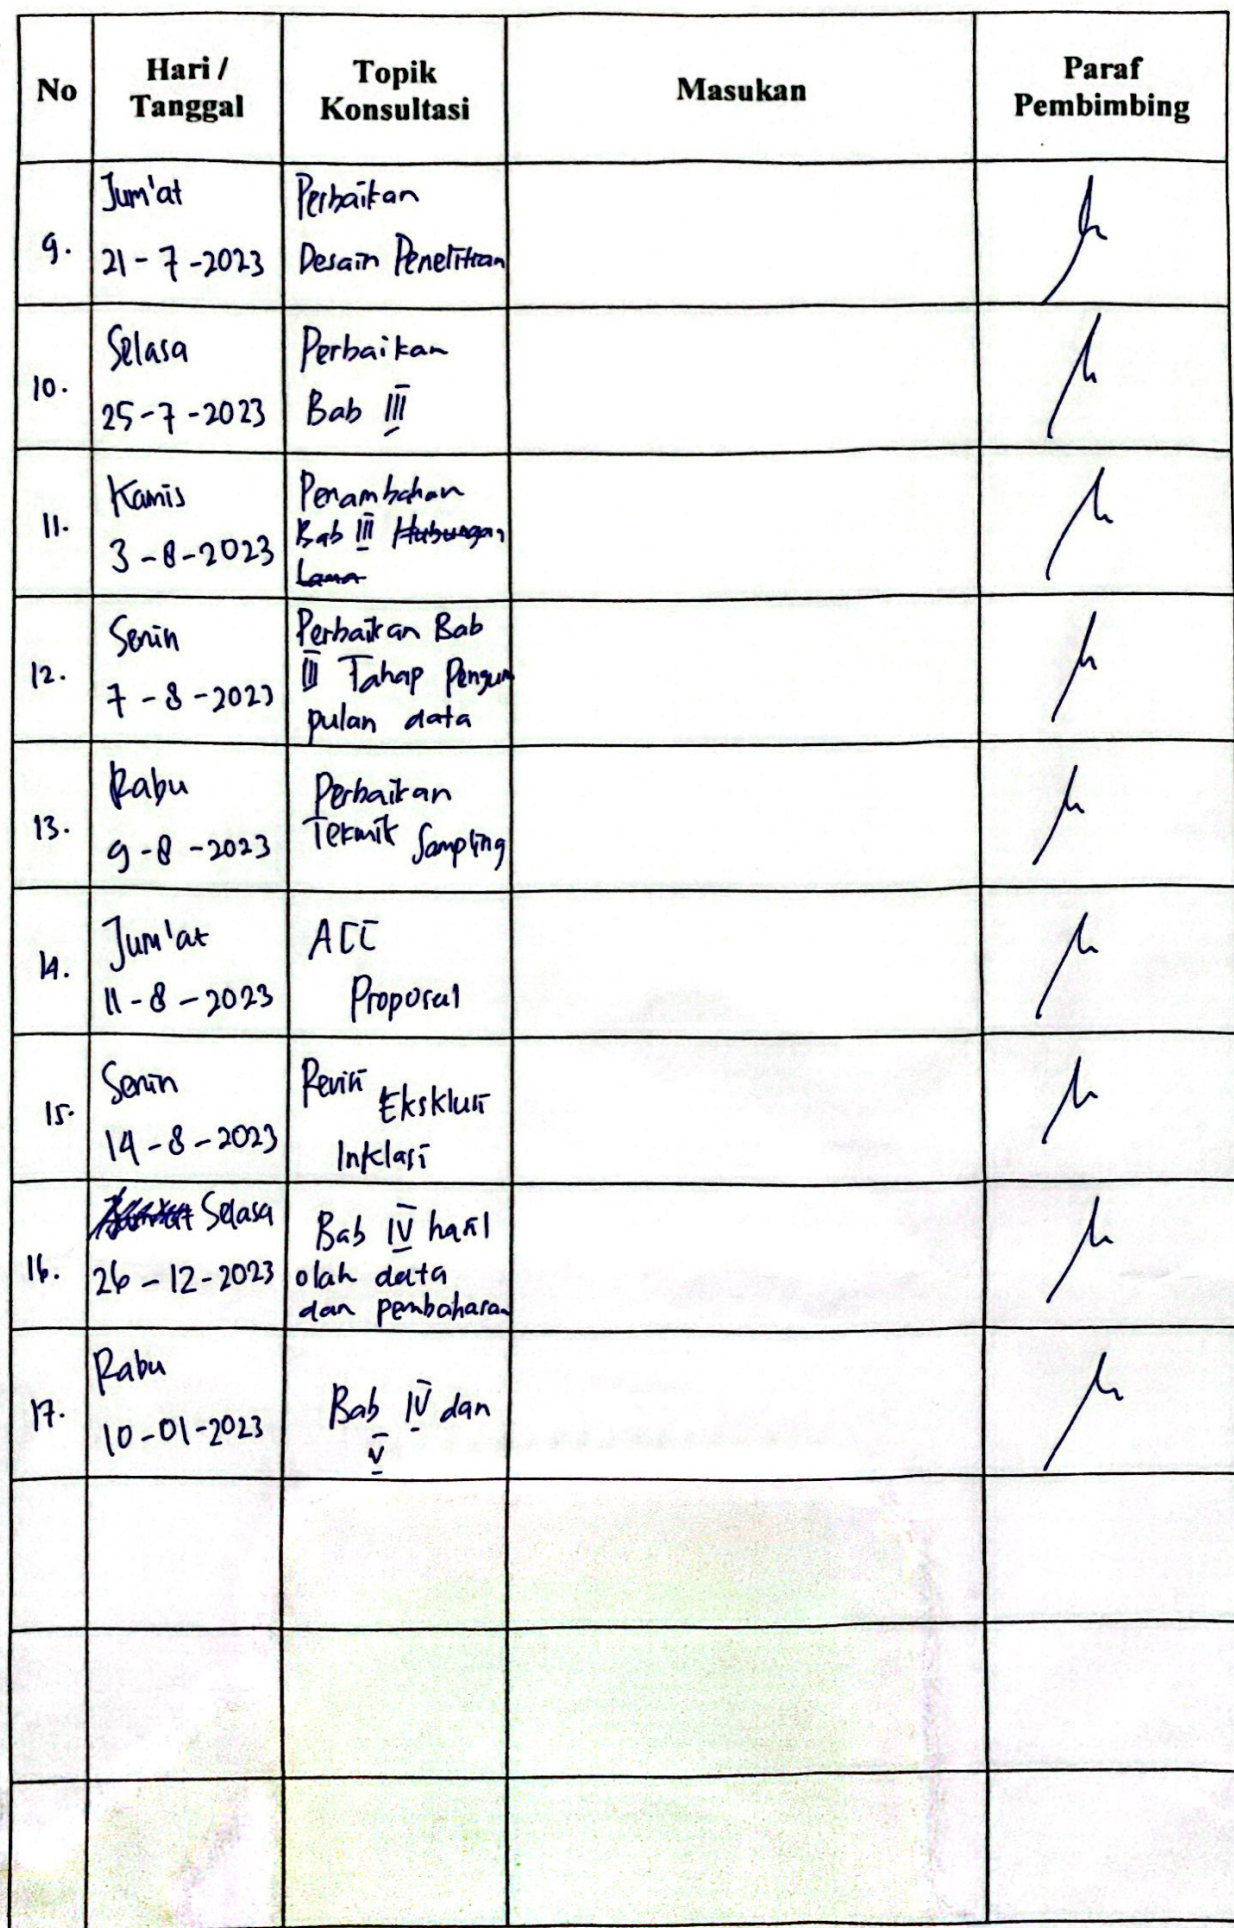 No
Hari /
Tanggal
Topik
Konsultasi
Masukan
Paraf
Pembimbing
9.
Jum'at
21-7-2023
Perbaikan
Desain Penelitian
10.
Selasa
25-7-2023
Perbaikan
Bab III
11.
Kamis
3-8-2023
Penambahan
Bab III Hubungan
Lama
12.
Senin
7-8-2023
Perbaikan Bab
III Tahap Pengum
pulan data
13.
Rabu
9-8-2023
Perbaikan
Teknik Sampling
14.
Jum'at
11-8-2023
ACC
Proposal
15.
Senin
14-8-2023
Revisi
Eksklusi
Inklasi
16.
Selasa
26-12-2023
Bab IV hasil
olah data
dan pembahasan
17.
Rabu
10-01-2023
Bab IV dan
V